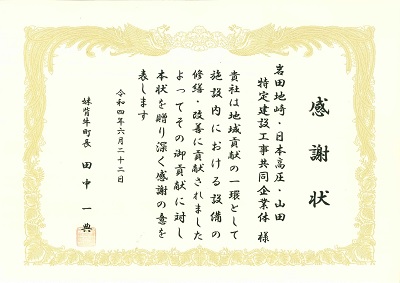 感謝状
岩田地崎・日本高圧・山田
特定建設工事共同企業体 様
貴社は地域貢献の一環として
施設内における設備の
修繕・改善に貢献されました
よってその御貢献に対し
本状を贈り深く感謝の意を
表します
令和四年六月二十二日
妹背牛町長 田中 一典